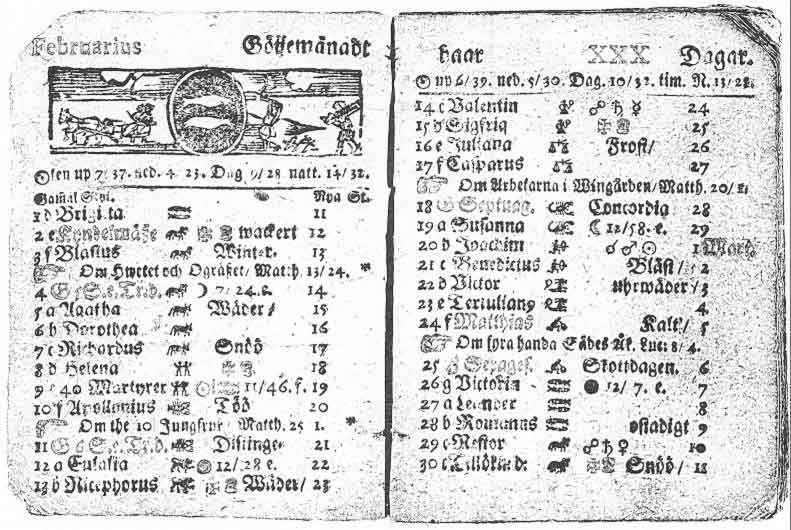 Februarius Göijemånadt
Solen up 7/37. ned. 4 23. Dag 9/28 natt. 14/32.
Gamal Nya St.
1 d Brigitta 11
2 e Kyndelmässe wackert 12
3 f Blasius Winter. 13
Om Hwetet och Ogräset/ Matth. 13/24. *
4 G 5 S. e. Tr. d. 7/24. e. 14
5 a Agatha Wäder/ 15
6 b Dorothea 16
7 c Richardus Snöö 17
8 d Helena 18
9 e 40 Martyrer 11/46. f. 19
10 f Apollonius Töö 20
Om the 10 Jungfrur/ Matth. 25 1. *
11 G 6 S. e. Tr. d. Distinge 21
12 a Eulalia 12/28 e. 22
13 b Nicephorus Wäder/ 23
haar XXX Dagar.
up 6/39. ned. 5/30. Dag. 10/32. tim. N. 13/28.
14 c Valentin ☍ ♄ ☿ 24
15 d Sigfrid 25
16 e Juliana Frost/ 26
17 f Casparus 27
Om Arbetarna i Wingården/ Matth. 20/1.
18 G Septuag. Concordia 28
19 a Susanna ☾ 12/58. e. 29
20 b Joachim ☌ ♂ ☉ 1 Mart.
21 c Benedictus Bläst/ 2
22 d Victor uhrwäder/ 3
23 e Tertulian9 4
24 f Matthias Kalt/ 5
Om fyra handa Sädes Åk. Luc: 8/4.
25 G Sexages. Skottdagen. 6
26 g Victorin ● 12/7. e. 7
27 a Leander 8
28 b Romanus ostadigt 9
29 c Nestor ☍ ♄ ♀ 10
30 Snöö/ 11